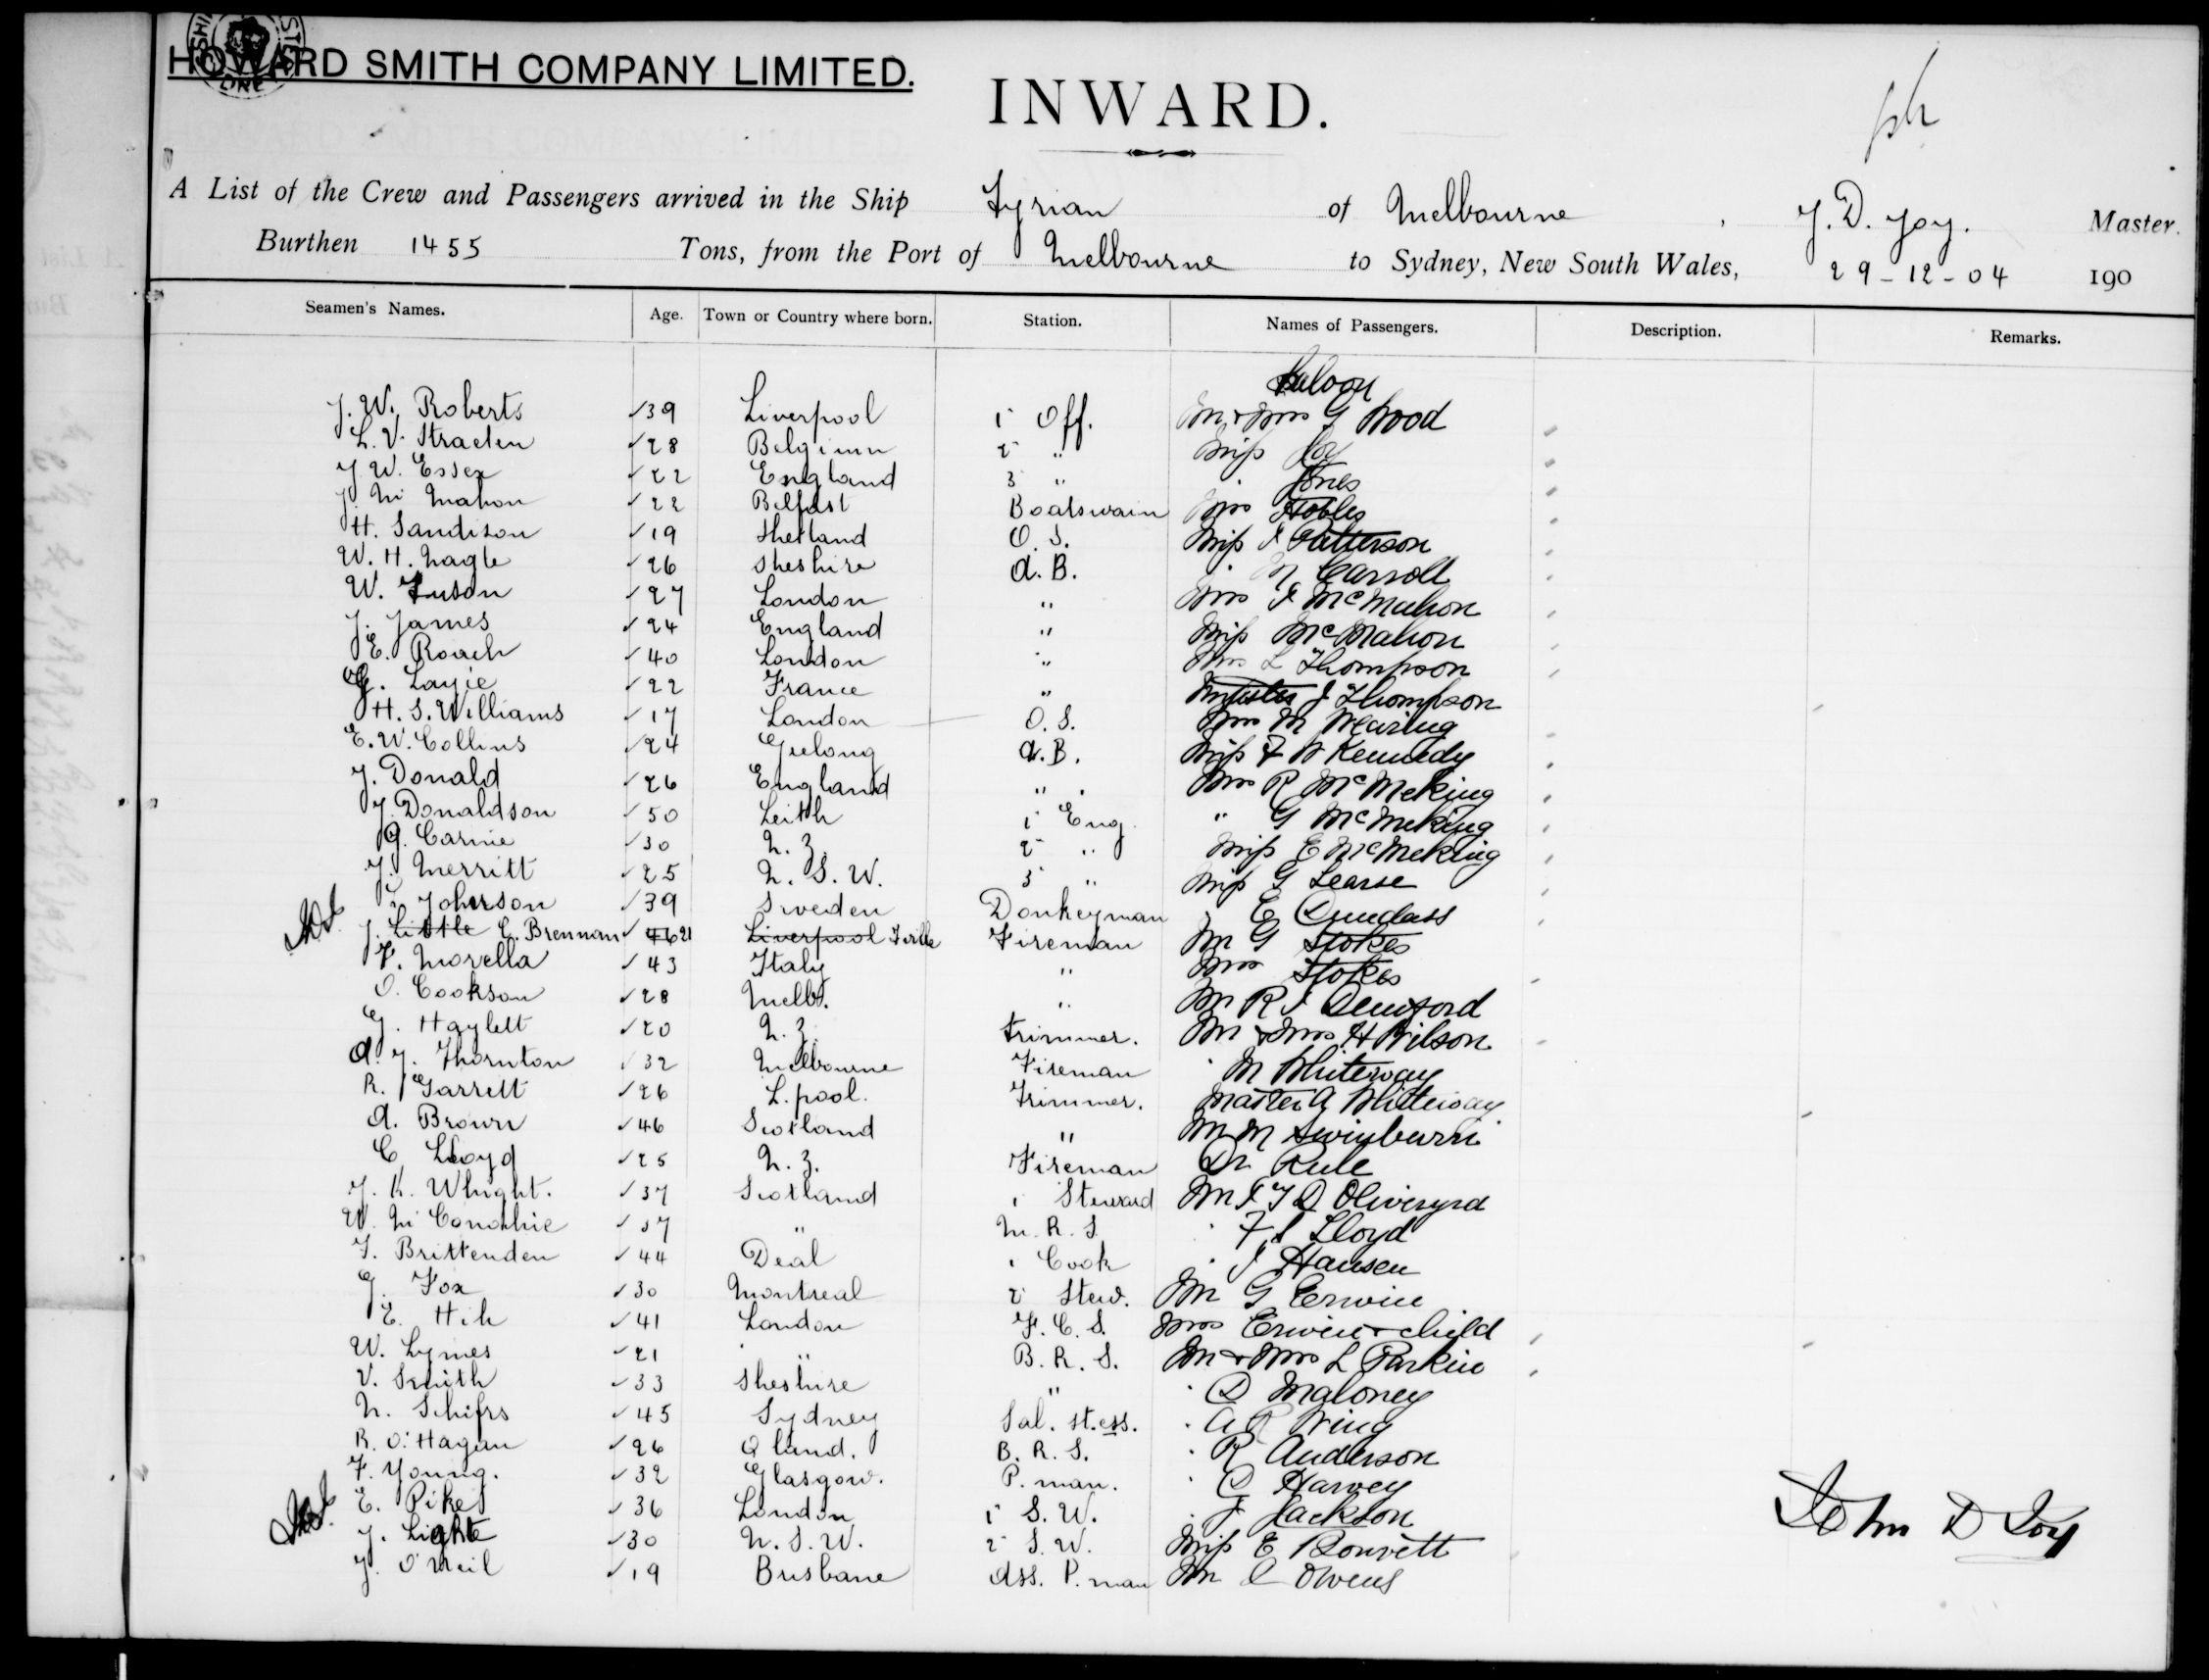 HOWARD SMITH COMPANY LIMITED.
ONE
INWARD.
A List of the Crew and Passengers arrived in the Ship Tyrian of Melbourne, J. D. Joy. Master.
Burthen 1455 Tons, from the Port of Melbourne to Sydney, New South Wales, 29-12-04 190
Seamen's Names. Age. Town or Country where born. Station. Names of Passengers. Description. Remarks.
Saloon
J. W. Roberts 39 Liverpool 1 Off. Mr & Mrs G Wood
L. V. Straeten 28 Belgium 2 " Miss
J. W. Essex 22 England 3 " Jones
J. Mc Mahon 22 Belfast Boatswain Mrs Hobles
H. Sandison 19 Shetland O. S. Miss Patterson
W. H. Nagle 26 Sheshire A. B. Carroll
W. Luson 27 London " Mrs McMahon
J. James 24 England " Miss McMahon
E. Roach 40 London " Mrs L Thompson
G. Layie 22 France " Master J Thompson
H. S. Williams 17 London O. S. Mrs M Wearing
E. W. Collins 24 Geelong A. B. Miss Kennedy
J. Donald 26 England " Mrs R McMeking
J. Donaldson 50 Leith 1 Eng. " G McMeking
G. Carnie 30 N. Z. 2 " Miss E McMeking
J. Merritt 25 N. S. W. 3 " Miss G Learse
Johnson 39 Sweden Donkeyman E Dundass
J. Little E. Brennan 46 21 Liverpool T.ville Fireman Mr G Stokes
F. Morella 43 Italy " Mrs Stokes
O. Cookson 28 Melb. " Mr R J Demford
G. Haylett 20 N. Z. Trimmer. Mr & Mrs H Wilson
A. J. Thornton 32 Melbourne Fireman M Whiteway
R. Garrett 26 L.pool. Trimmer. Master A Whiteway
A. Brown 46 Scotland " Mr M Swinburn
C Lloyd 25 N. Z. Fireman Dr Rule
J. K. Whright. 37 Scotland 1 Steward Mr
W. Mc Conothie 37 " M. R. S. Lloyd
T. Brittenden 44 Deal 1 Cook J Hansen
G. Fox 30 Montreal 2 Stew. Mr G Erwin
E. Hih 41 London F. C. S. Mrs Erwin & child
W. Lymes 21 " B. R. S. Mr & Mrs L Parkin
V. Smith 33 Sheshire " D Maloney
N. Schifrs 45 Sydney Sal. st.ess. A R Wing
R. O'Hagan 26 Q land. B. R. S. R Anderson
F. Young. 32 Glasgow. P. man. Harvey
E. Pike 36 London 1 S. W. J Jackson
J. Light 30 N. S. W. 2 S. W. Miss E Bonvett
J. O'Neil 19 Brisbane Ass. P. man Mr C Owens
John D Joy